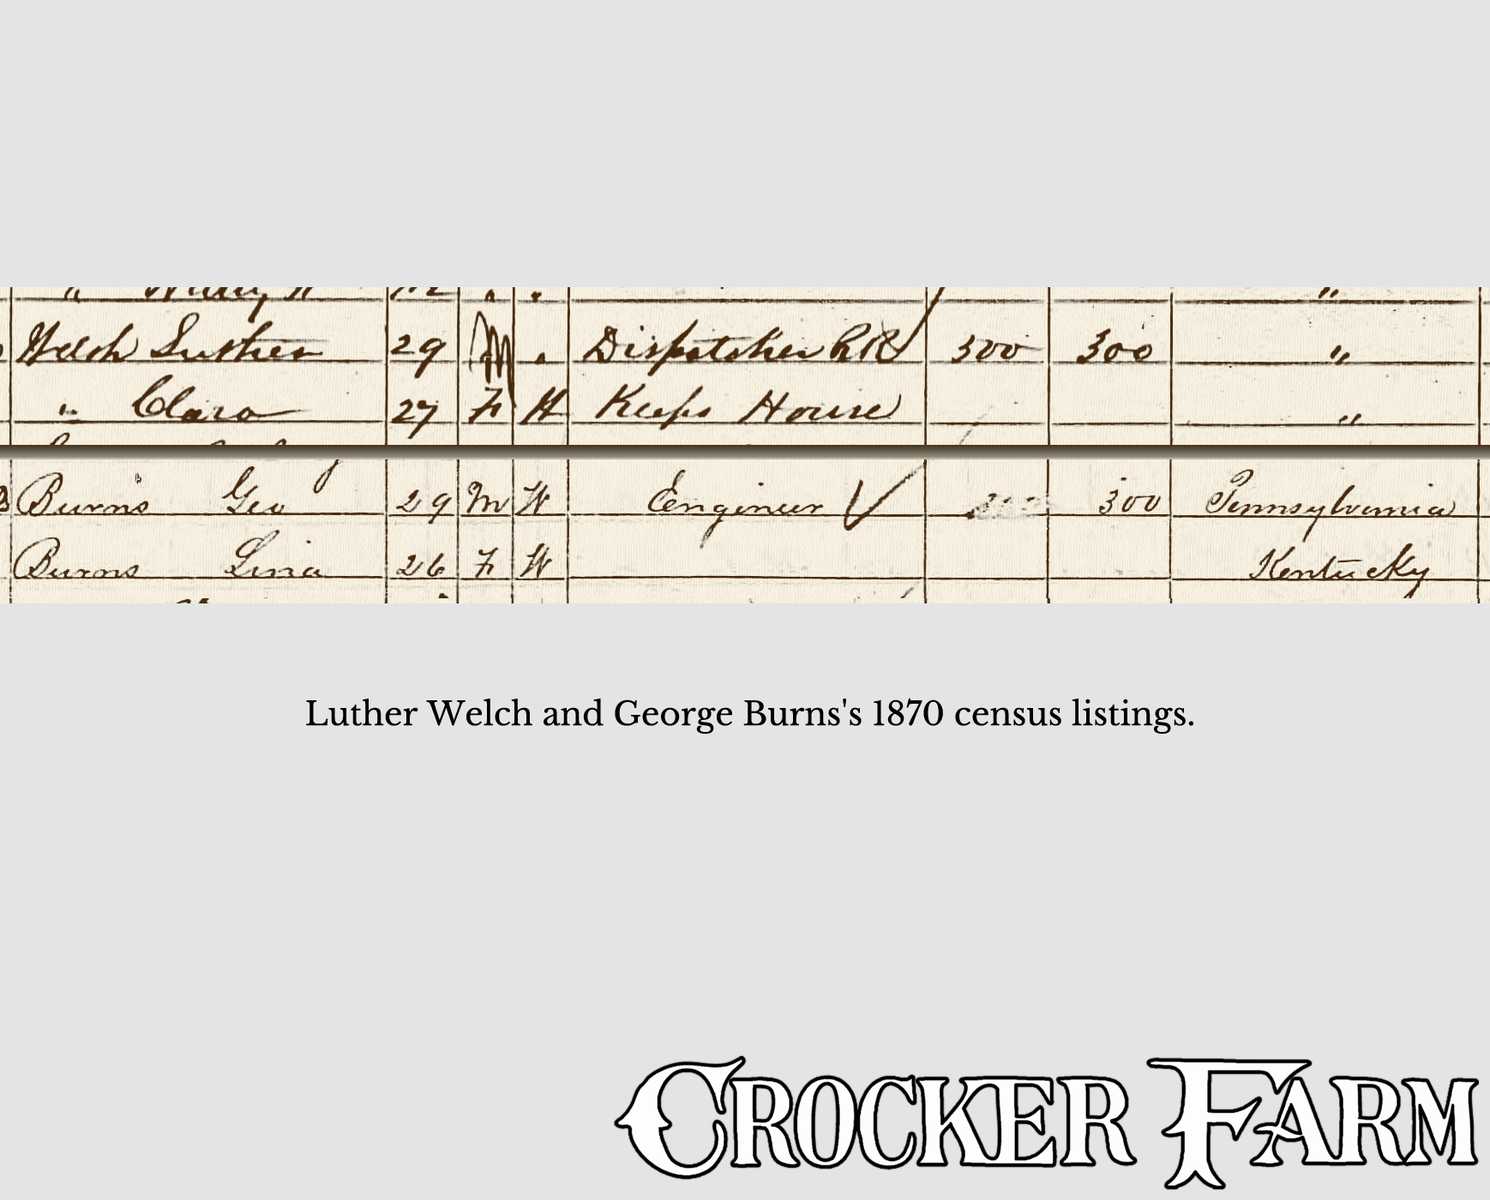 Welch Luther 29 M Dispatcher RR 300 300 "
" Clara 27 F W Keeps House "
Burns Geo 29 M W Engineer 300 Pennsylvania
Burns Lina 26 F W Kentucky
Luther Welch and George Burns's 1870 census listings.
CROCKER FARM